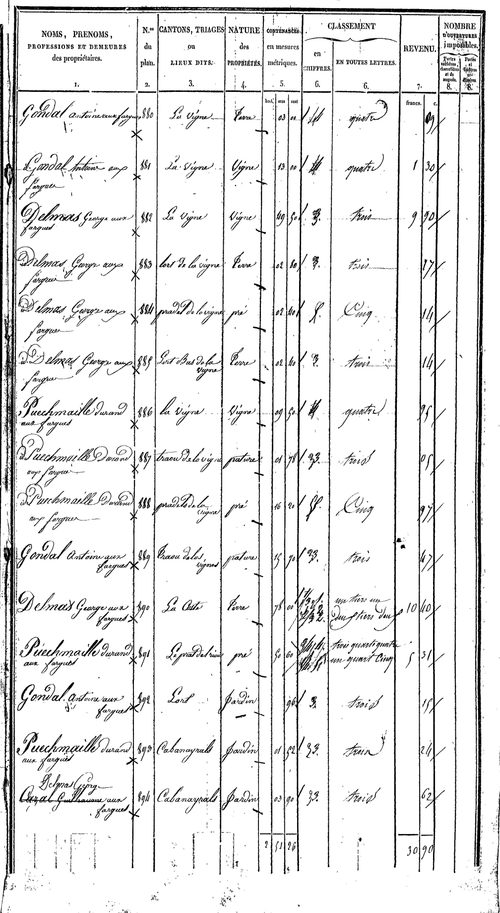 NOMS, PRENOMS, PROFESSIONS ET DEMEURES des propriétaires. N.os du plan. CANTONS, TRIAGES ou LIEUX DITS. NATURE des PROPRIÉTÉS. CONTENANCES en mesures métriques. CLASSEMENT en CHIFFRES. EN TOUTES LETTRES. REVENU. NOMBRE d'ouvertures imposables.
1. 2. 3. 4. 5. 6. 6. 7. 8. 8.
francs. c.
Gondal antoine aux fargues 880 La Vigne Terre 03 00 4 quatre 09
d. Gondal Antoine aux fargues 881 La Vigne Vigne 13 00 4 quatre 1 30
Delmas George aux fargues 882 La Vigne Vigne 49 50 3 trois 9 90
d. Delmas George aux fargues 883 lort de la vigne Terre 02 80 3. trois 27
d. Delmas George aux fargues 884 pradet de la vigne pré 02 40 5 Cinq 14
d. Delmas George aux fargues 885 Lort Bas de la vigne Terre 02 40 3 trois 14
Puechmaille durand aux fargues 886 la Vigne Vigne 09 50 4 quatre 95
d. Puechmaille Durand aux fargues 887 traou de la vigne pature 01 78 3. trois 05
d. Puechmaille Durand aux fargues 888 pradet de la vigne pré 16 20 5. Cinq 97
Gondal Antoine aux fargues 889 traou de las vignes pature 15 70 3. trois 47
Delmas George aux fargues 890 La Coste Terre 78 00 un tiers un deux tiers deux 10 40
Puechmaille durand aux fargues 891 pré 50 60 trois quarts quatre un quart Cinq 5 31
Gondal Antoine aux fargues 892 Lort Jardin 96 3. trois 15
Puechmaille durand aux fargues 893 Cabanayrals Jardin 01 52 3. trois 24
Delmas George
Cazal Guillaume aux fargues 894 Cabanayrals Jardin 03 90 3. trois 62
2 51 26 30 90